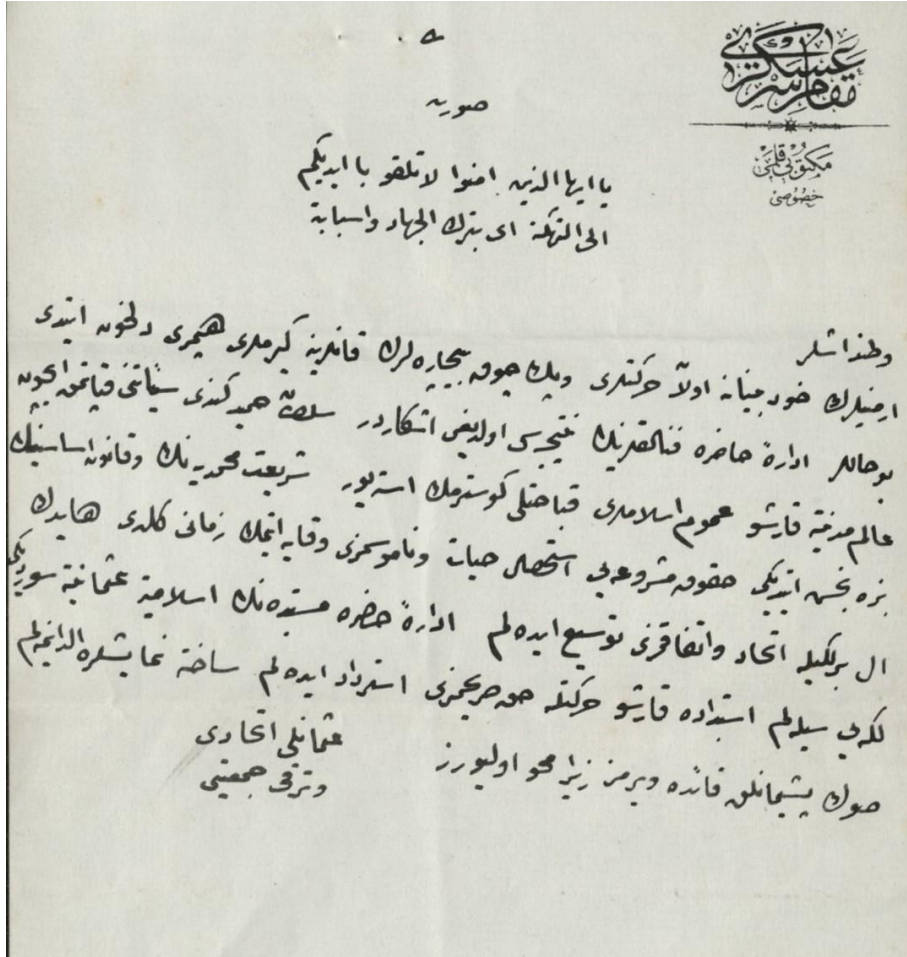 مقام سر عسكرى
مكتوبى قلمى
خصوصى
صورت
يا ايها الذين امنوا لا تلقوا با ايديكم
الى التهلكة اى بترك الجهاد واسبابه
وطنداشلر
ارمنيلرك خودبينانه اولان حركتلرى وپك چوق بيچاره لرك قانلرينه كيرملرى هپمزى دلخون ايتدى
بو حاللر ادارهٔ حاضره فنالقلرينك نتيجه سى اولديغى آشكاردر سلطان حميد كندى سيئاتنى قپاتمق ايچون
عالم مدنيته قارشو عموم اسلاملرى قباحتلى كوسترمك استه يور شريعت محمديه نك وقانون اساسينك
بزه بخش ايتديكى حقوق مشروعه يى استحصال حيات وناموسمزى وقايه ايتمك زمانى كلدى هايدك
ال برلكيله اتحاد واتفاقمزى توسيع ايده لم ادارهٔ حاضره مستبده نك اسلاميته عثمانيته سورديكى
لكه يى سيله لم استبداده قارشو حركتله حق صريحمزى استرداد ايده لم ساخته نمايشلره الدانميه لم
صوك پشيمانلق فائده ويرمز زيرا محو اوليورز
عثمانلى اتحادى
وترقى جمعيتى